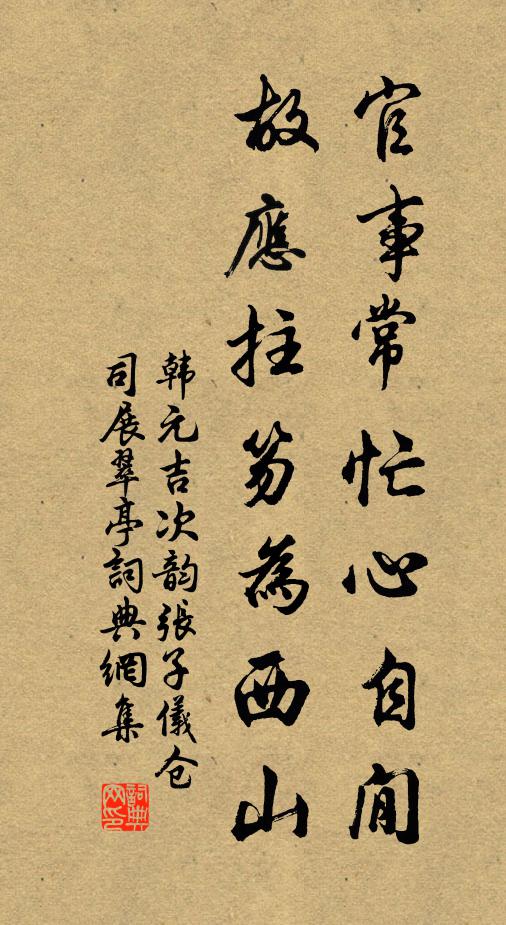 官事常忙心自閒
故應拄笏為西山
韩元吉次韵張子儀仓
司展翠亭詞典網集
詞典網印